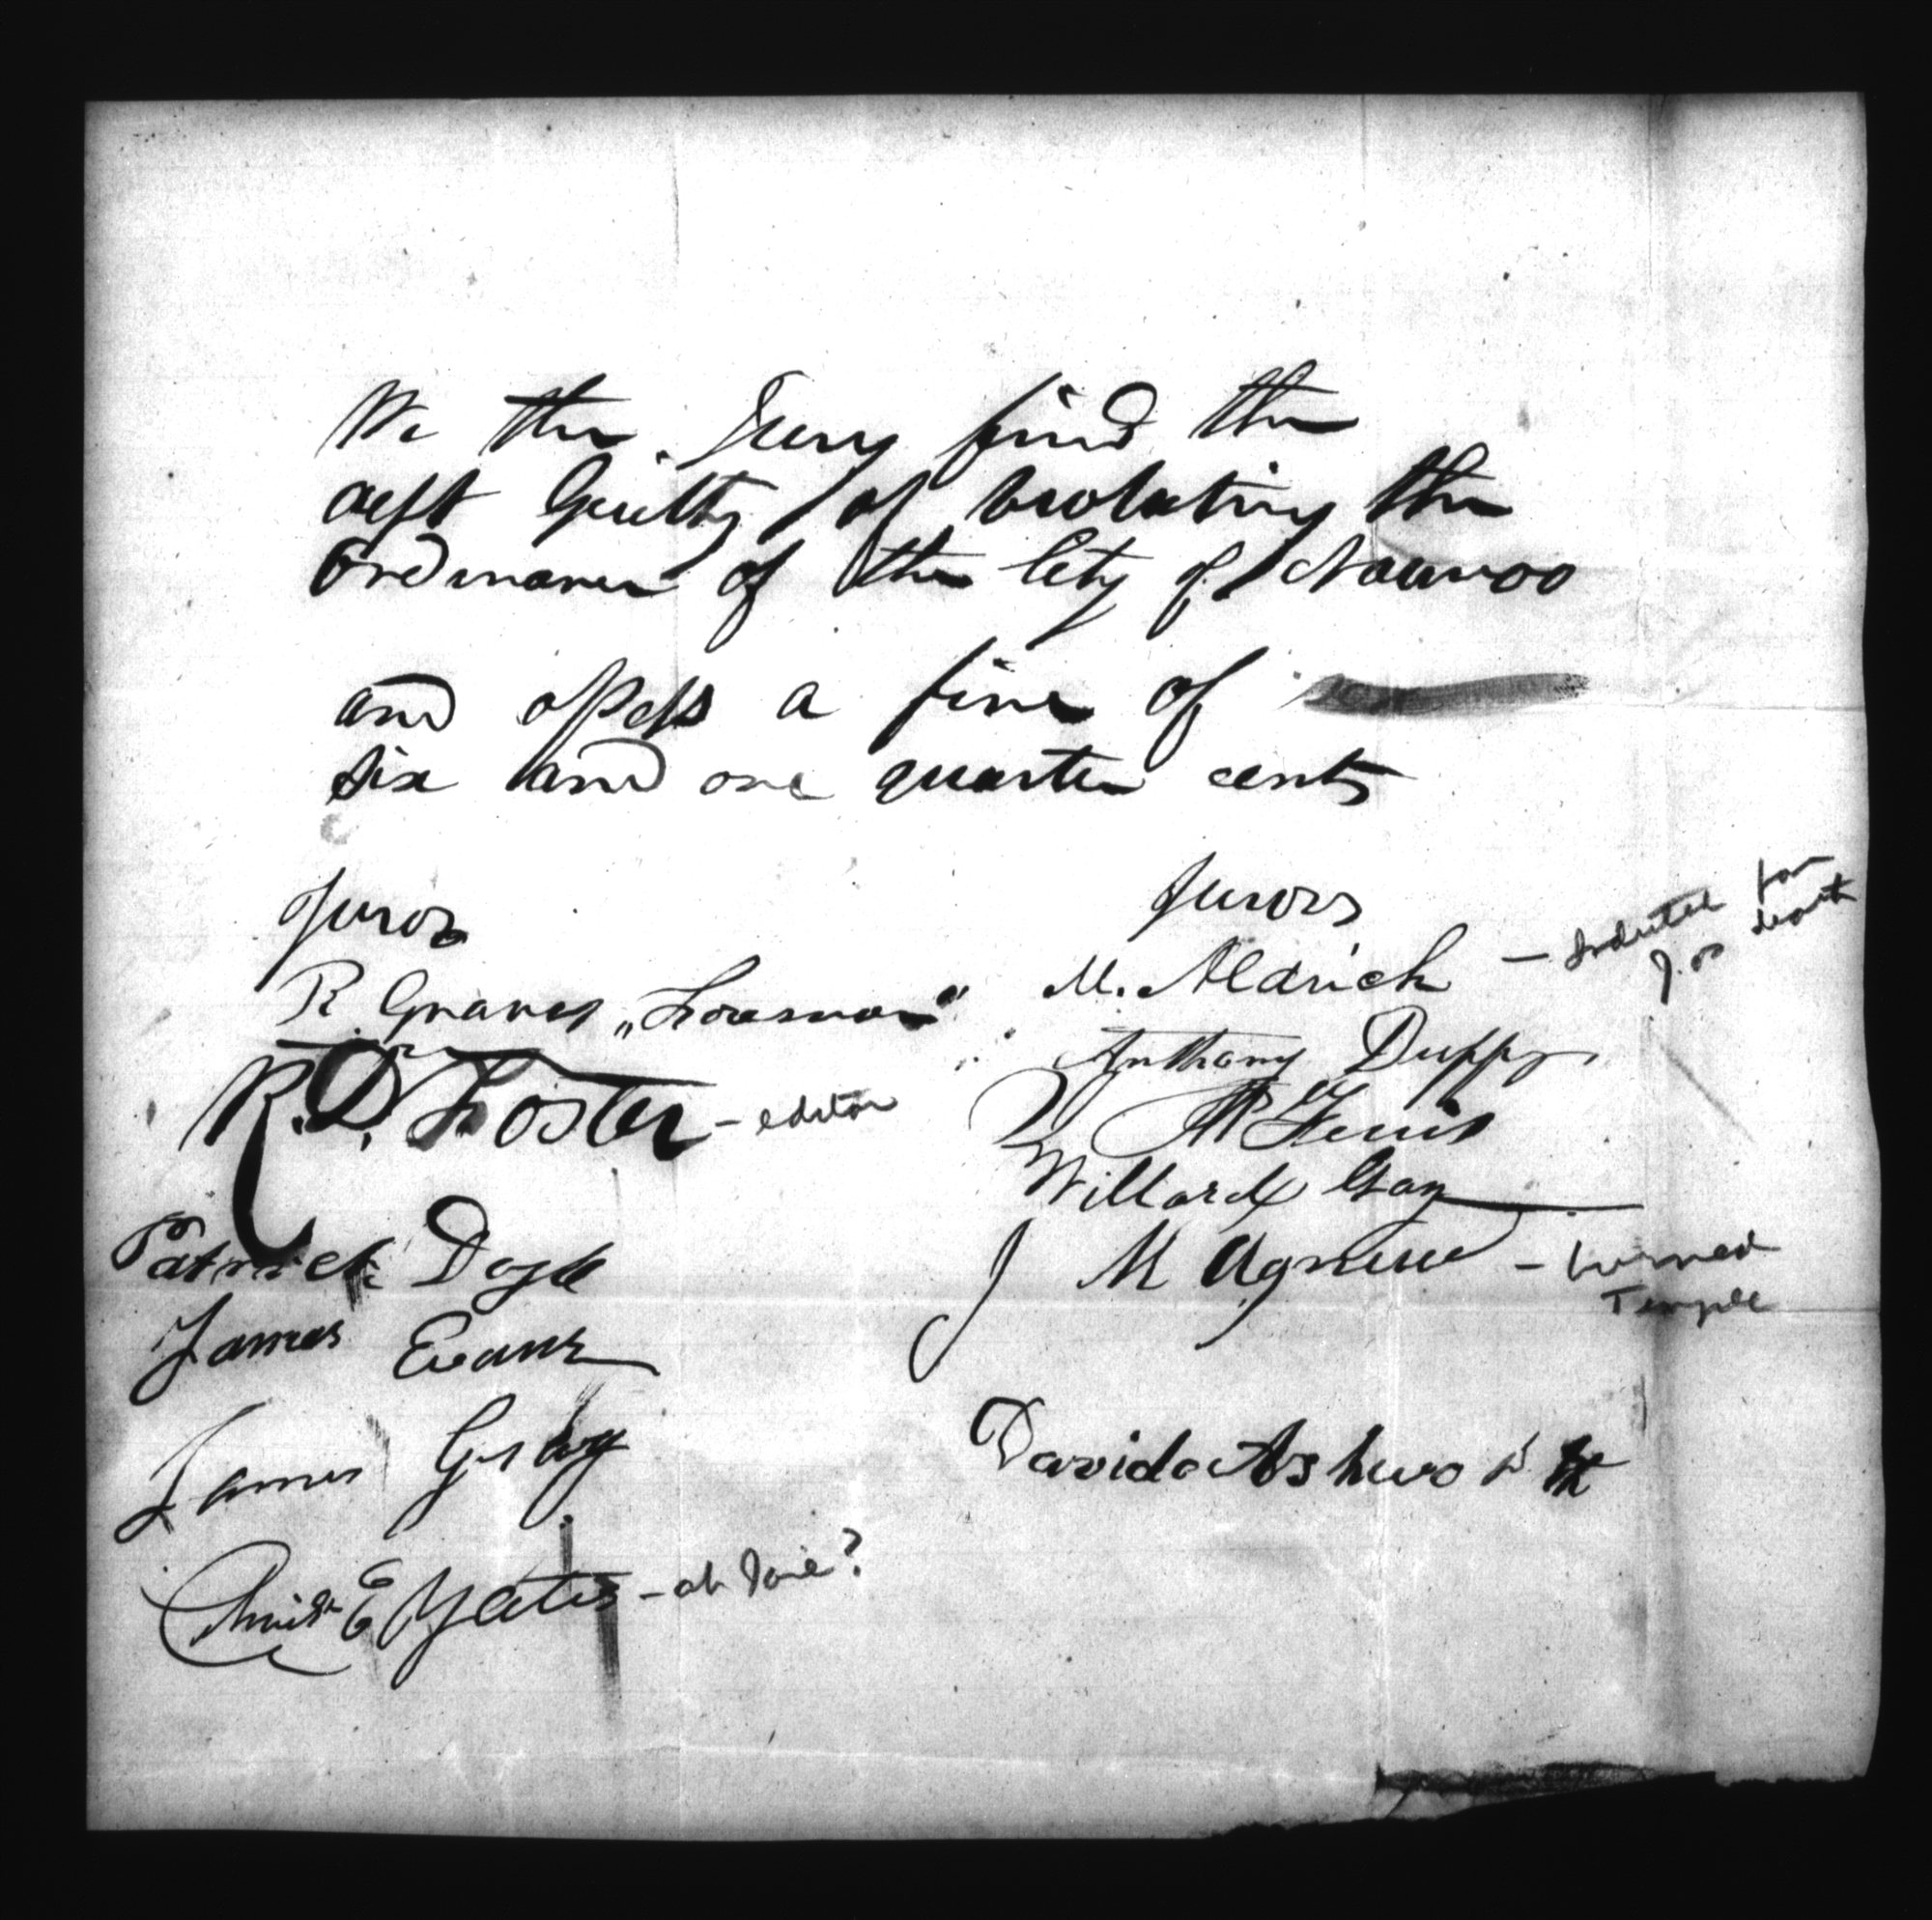 We the Jury find the
deft Guilty of violating the
Ordinance of the City of Nauvoo
and assess a fine of
six and one quarter cents
Juros
R. Graves „Foreman"
R. D. Foster - editor
Patrick Doyle
James Evans
James
Christ E Yates - at
Jurors
M. Aldrich - Indicted for
J. S. death
Anthony Duffy
Willard Gay
J M Agnew - burned
Temple
David Ashworth